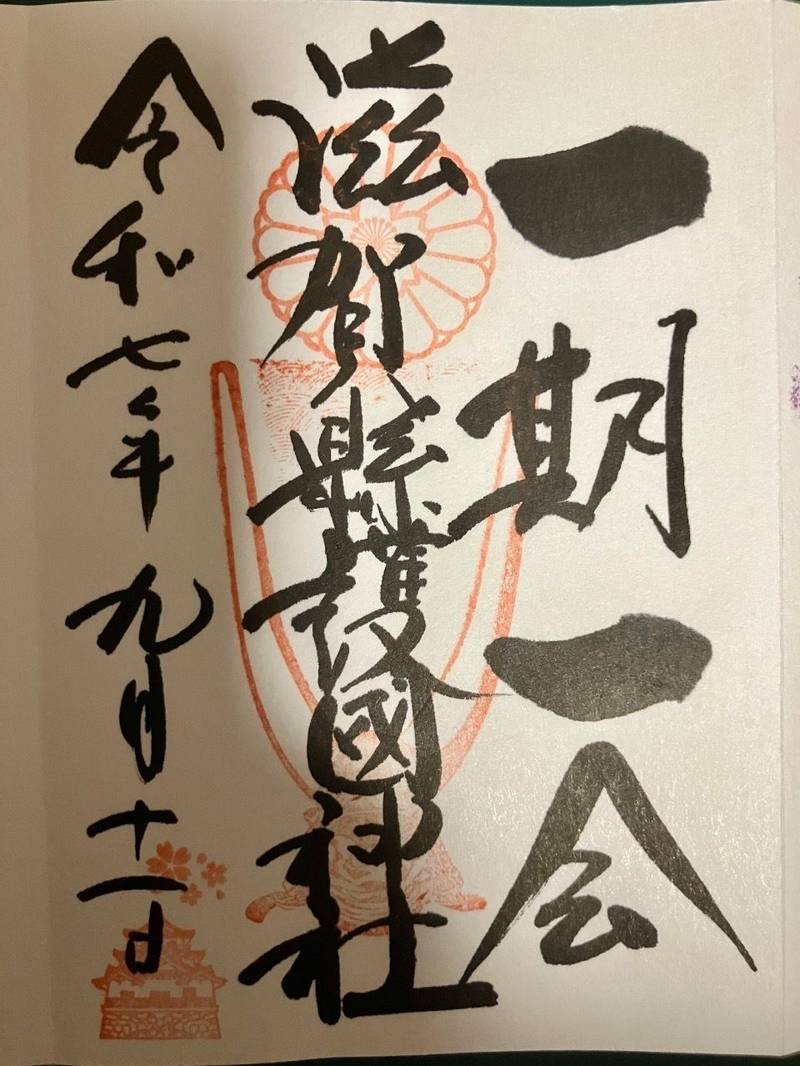 一期一会
滋賀縣護國神社
令和七年九月十一日